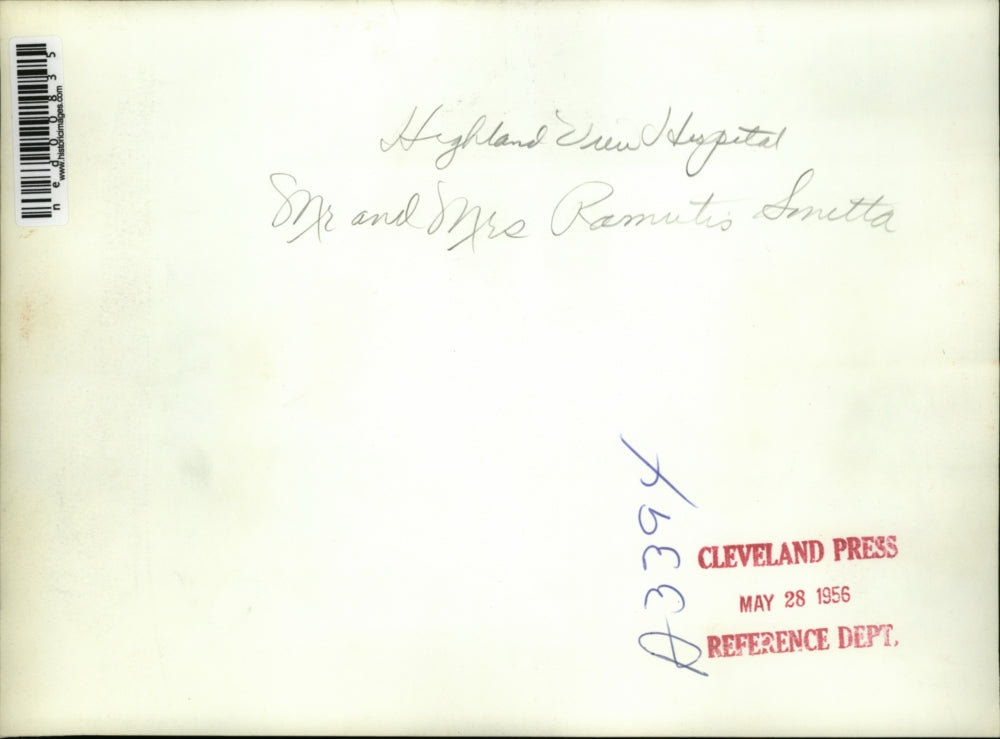 Highland View Hospital
Mr and Mrs Ramutis Smetta
A339X
CLEVELAND PRESS
MAY 28 1956
REFERENCE DEPT.
ned00835
www.historicimages.com